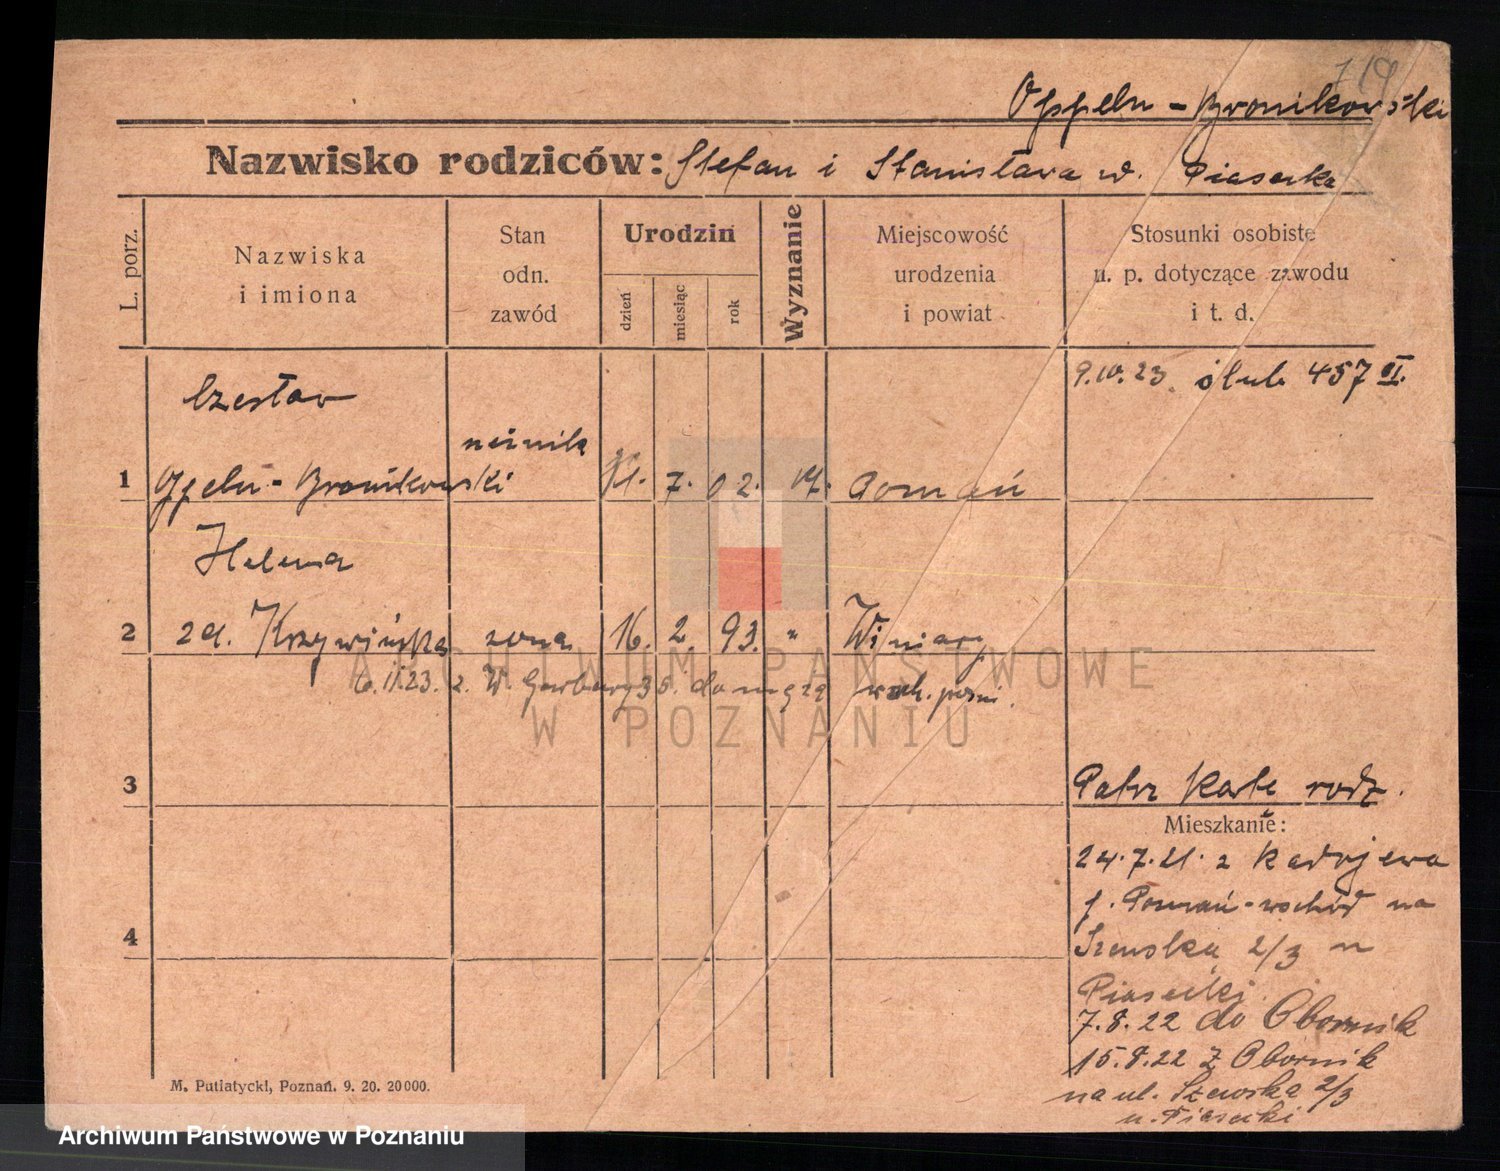 719
Oppeln-Bronikowski
Nazwisko rodziców: Stefan i Stanisława w. Piasecka
L. porz.
Nazwiska
i imiona
Stan
odn.
zawód
Urodzin
dzień
miesiąc
rok
Wyznanie
Miejscowość
urodzenia
i powiat
Stosunki osobiste
u. p. dotyczące zawodu
i t. d.
9.10.23. ślub 457 III.
Czesław
ucznik
1 Oppeln-Bronikowski 7. 02. Poznań
Helena
2 zd. Krzywińska żona 16. 2. 93. " Winiary
6.11.23. z. W. Garbary 35. do męża
3
Patrz Karte rodz.
Mieszkanie:
24.7.21. z Radojewa
p. Poznań-wschód na
4
Szewska 2/3 u
Piasecki.
7.8.22 do Obornik
15.8.22 z Obornik
na ul. Szewska 2/3
u. Piasecki
M. Putiatycki, Poznań. 9. 20. 20000.
ARCHIWUM PAŃSTWOWE
W POZNANIU
Archiwum Państwowe w Poznaniu